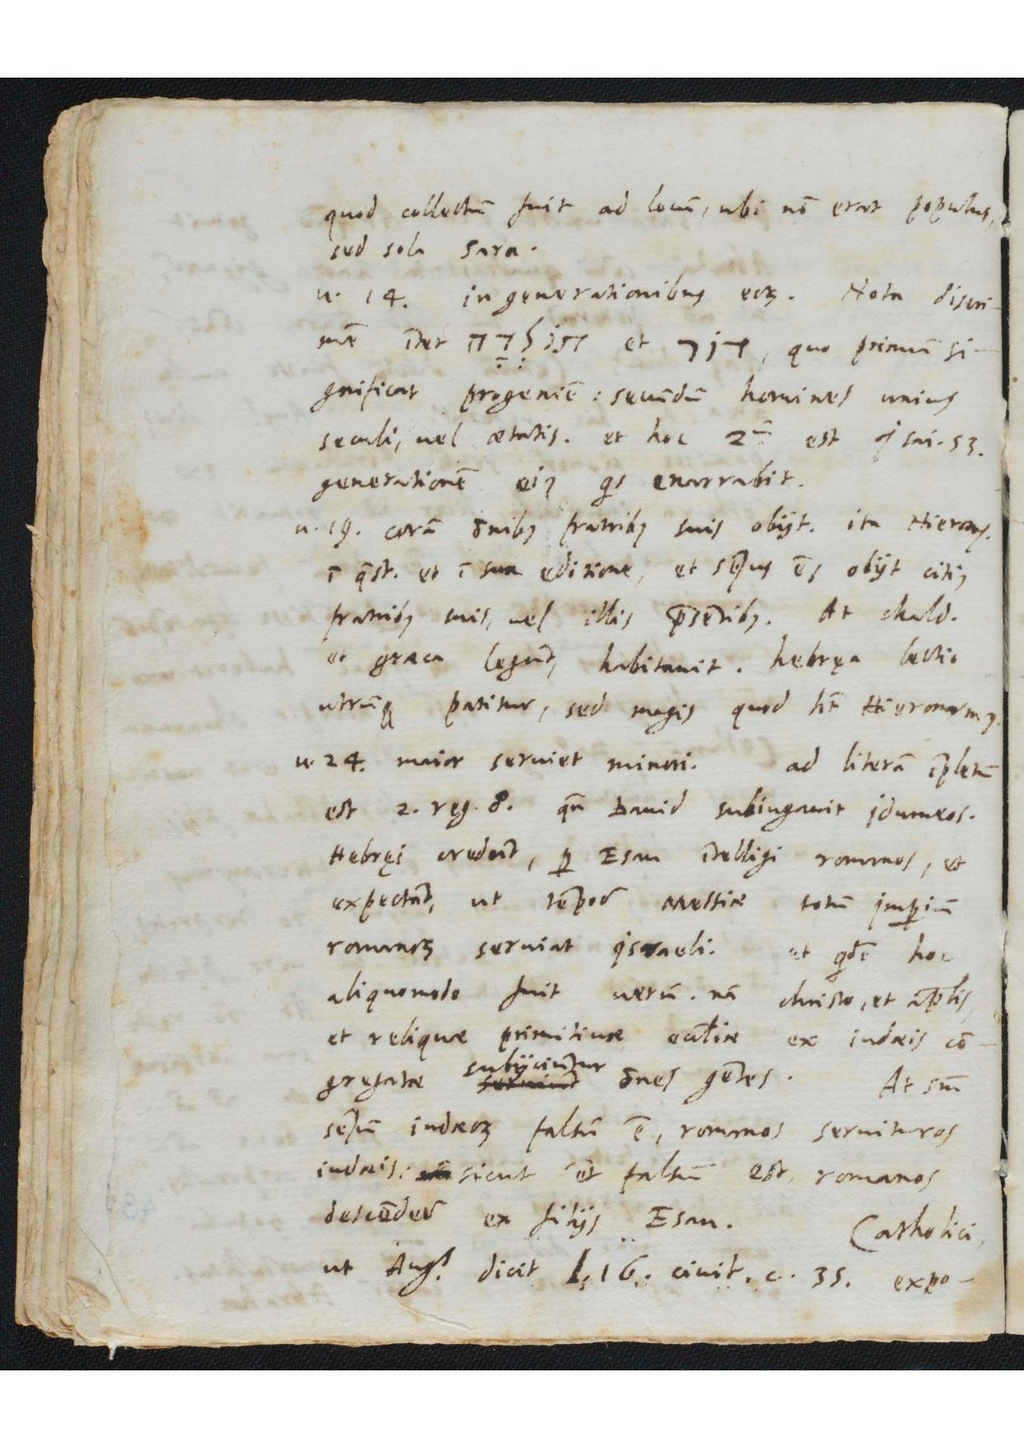 quod collectū fuit ad locū, ubi nō erat populus,
sed sola Sara.
u. 14. in generationibus eoꝝ. Nota discri-
mē īter תולדה et דור, quo primū si-
gnificat progeniē: secūdū homines unius
seculi, uel ætatis. et hoc 2ū est isai. 53.
generationē eiꝰ qis enarrabit.
u. 18. corā ōnibꝰ fratribꝰ suis obijt. ita Hieronyꝰ.
ī q̄st. et ī sua editione, et sēsus ē, obijt citiꝰ
fratribꝰ suis, uel illis p̄sētibꝰ. At chald.
et græca legūt, habitauit. hebręa lectio
utrūqꝫ patitur, sed magis quod hēt Hieronymꝰ.
u. 24. maior seruiet minori. ad literā īpletū
est 2. reg. 8. qn̄ Dauid subiugauit idumæos.
Hebręi credūt, ꝑ Esau ītelligi romanos, et
expectāt, ut tēpore messiæ totū imꝑiū
romanoꝝ seruiat israeli. et qdē hoc
aliquomodo fuit uerū. nā christo, et ap̄lis,
et reliquæ primitiuæ eccl̄iæ ex iudæis cō-
gregatæ subijciūtur ōnes gētes. At sm̄
sēsū iudæoꝝ falsū ē, romanos seruituros
iudæis: sicut et falsū est, romanos
descēdere ex filijs Esau. Catholici,
ut Aug. dicit l. 16. ciuit. c. 35. expo-